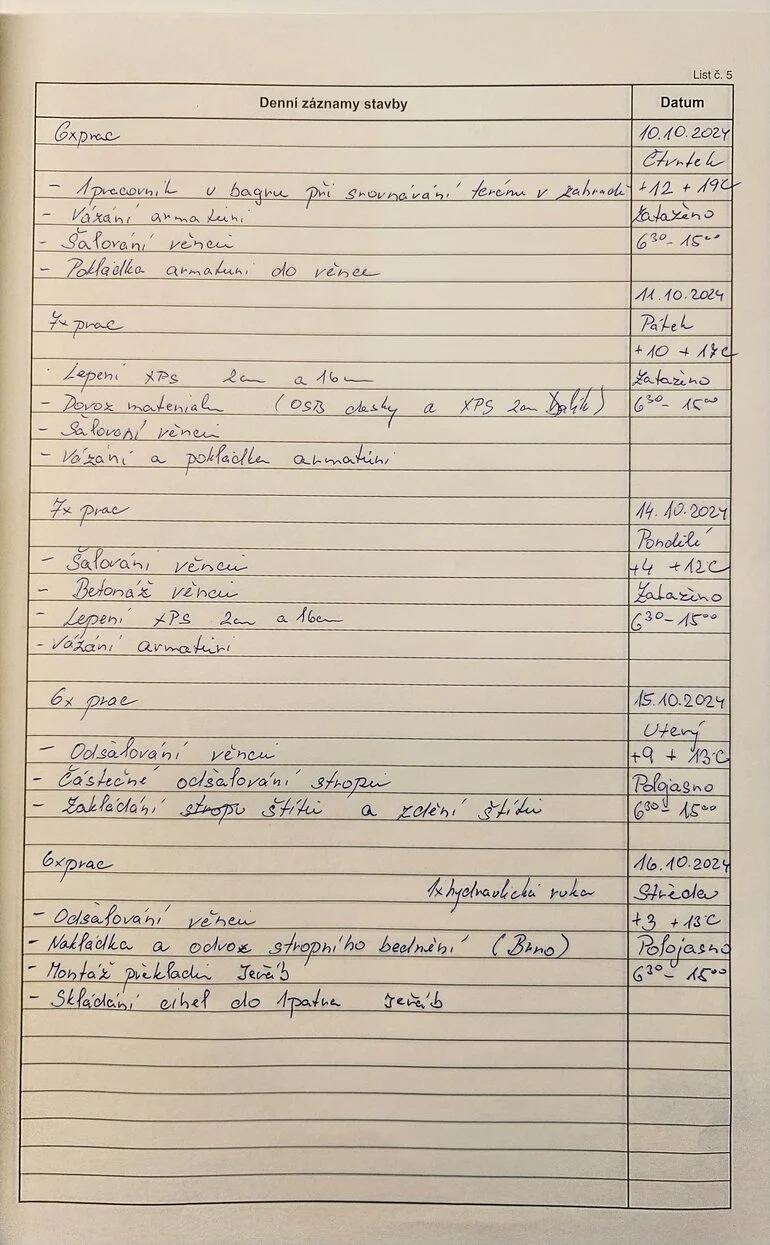 List č. 5
Denní záznamy stavby Datum
6xprac 10.10.2024
Čtvrtek
- 1pracovník u bagru při srovnávání terénu v zahradě +12 +19C
- Vázání armatuni Zataženo
- Šalování věnců 6³⁰-15⁰⁰
- Pokládka armatuni do věnce
11.10.2024
7x prac Pátek
+10 +17C
- Lepení XPS 2cm a 16cm Zataženo
- Dovoz materialu (OSB desky a XPS 2cm) 6³⁰-15⁰⁰
- Šalovaní věnců
- Vázání a pokládka armatúni
7x prac 14.10.2024
Pondělí
- Šalování věnců +4 +12C
- Betonáž věnců Zataženo
- Lepení XPS 2cm a 16cm 6³⁰-15⁰⁰
- Vázání armatúni
6x prac 15.10.2024
Uterý
- Odšalování věnců +9 +13°C
- Částečné odšalování stropu Polojasno
- Zakládání stropu štítů a zdění štítů 6³⁰-15⁰⁰
6xprac 16.10.2024
1xhydraulická ruka Středa
- Odšalování věnců +3 +13C
- Nakládka a odvoz stropního bednění (Brno) Polojasno
- Montáž překladů Jeřáb 6³⁰-15⁰⁰
- Skládání cihel do 1patra Jeřáb